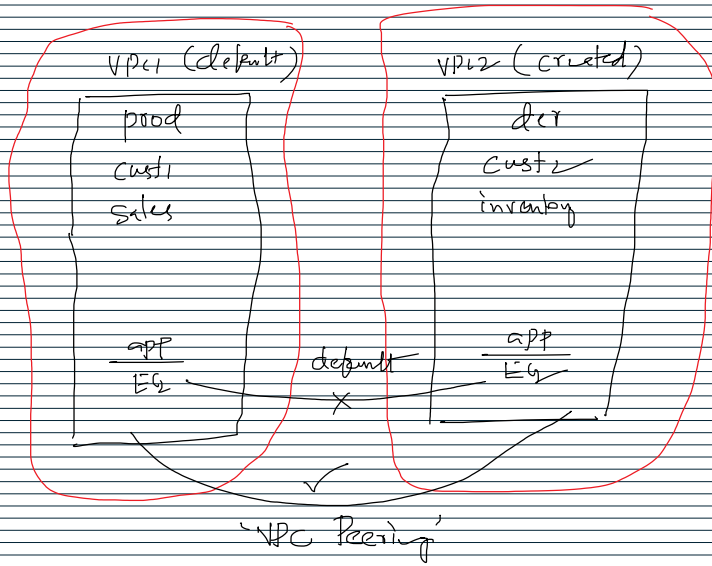 VPC1 (default)
prod
cust1
sales
app
EC2
VPC2 (created)
dev
cust2
inventory
app
EC2
default
X
'VPC Peering'